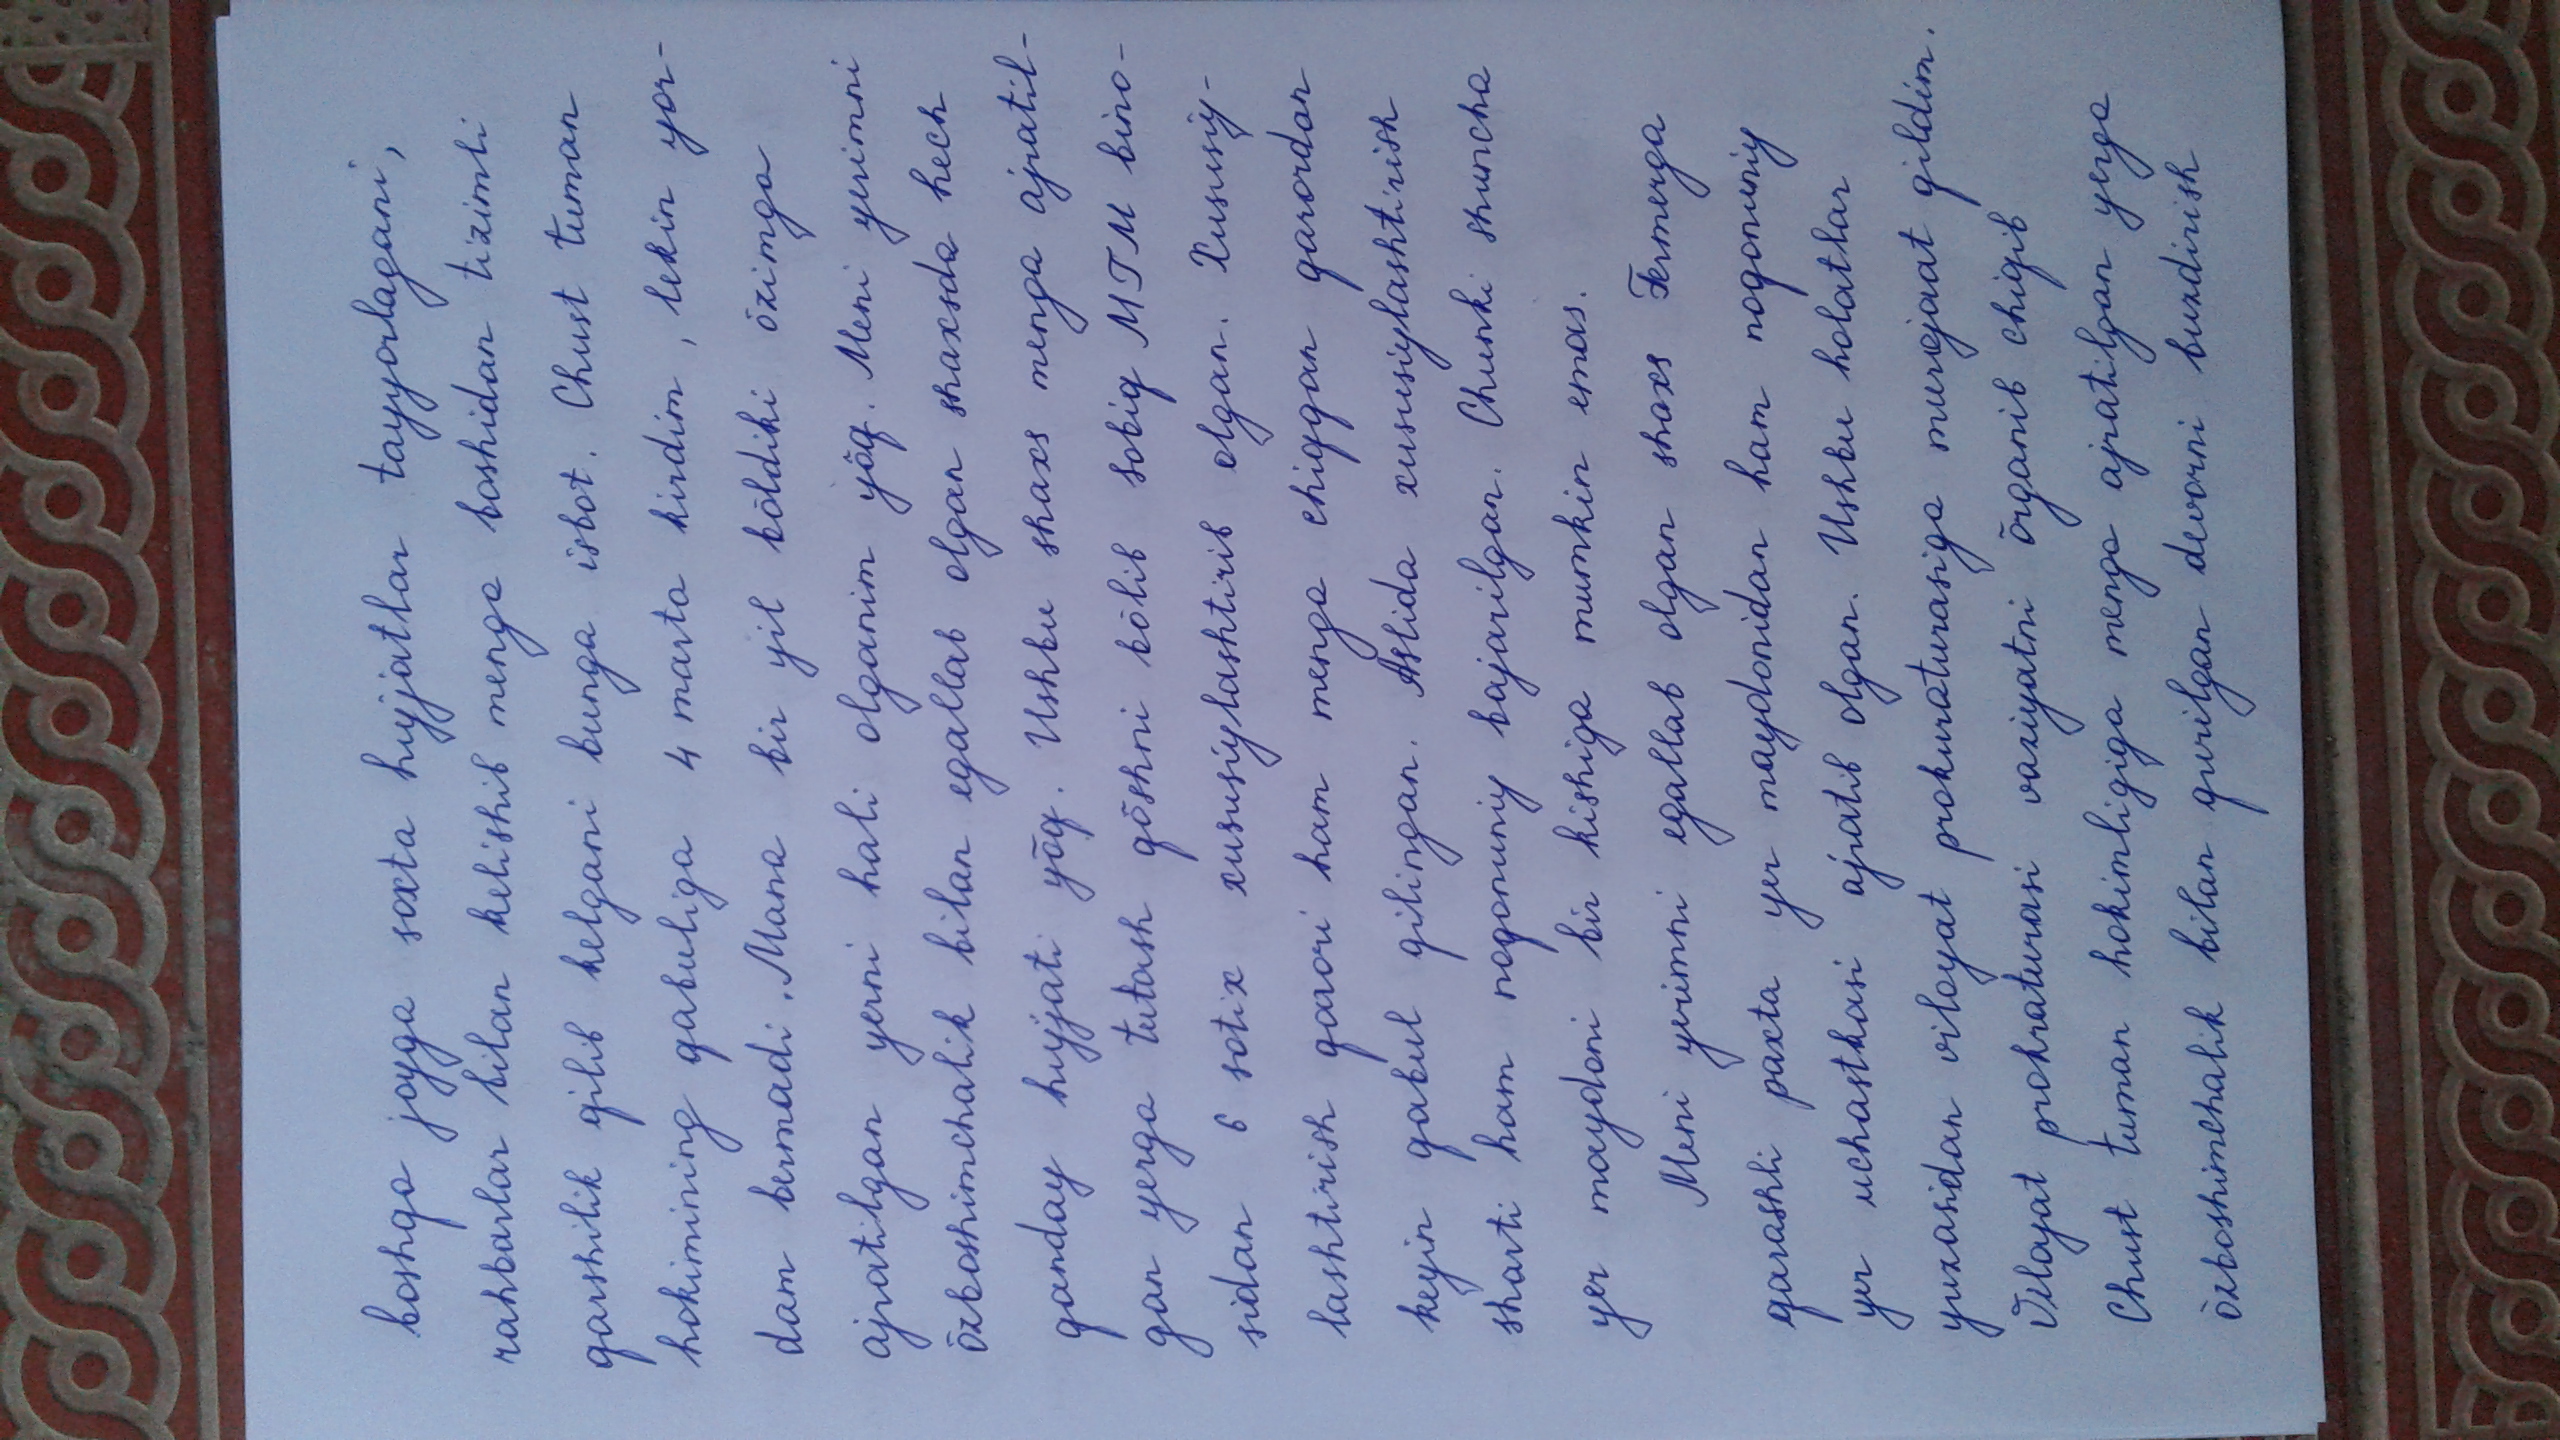 boshqa joyga soxta hujjatlar tayyorlagani,
rahbarlar bilan kelishib menga boshidan tizimli
qarshilik qilib kelgani bunga isbot. Chust tuman
hokimining qabuliga 4 marta kirdim, lekin yor-
dam bermadi. Mana bir yil bōldiki ōzimga
ajratilgan yerni hali olganim yōq. Meni yerimni
ōzboshimchalik bilan egallab olgan shaxsda hech
qanday hujjati yōq. Ushbu shaxs menga ajratil-
gan yerga tutash qōshni bōlib sobiq MTM bino-
sidan 6 sotix xususiylashtirib olgan. Xususiy-
lashtirish qarori ham menga chiqqan qarordan
keyin qabul qilingan. Aslida xususiylashtirish
sharti ham noqonuniy bajarilgan. Chunki shuncha
yer maydoni bir kishiga mumkin emas.
Meni yerimni egallab olgan shaxs Fermerga
qarashli paxta yer maydonidan ham noqonuniy
yer uchastkasi ajratib olgan. Ushbu holatlar
yuzasidan viloyat prokuraturasiga murojaat qildim.
Viloyat prokraturasi vaziyatni ōrganib chiqib
Chust tuman hokimligiga menga ajratilgan yerga
ōzboshimchalik bilan qurilgan devorni buzdirish